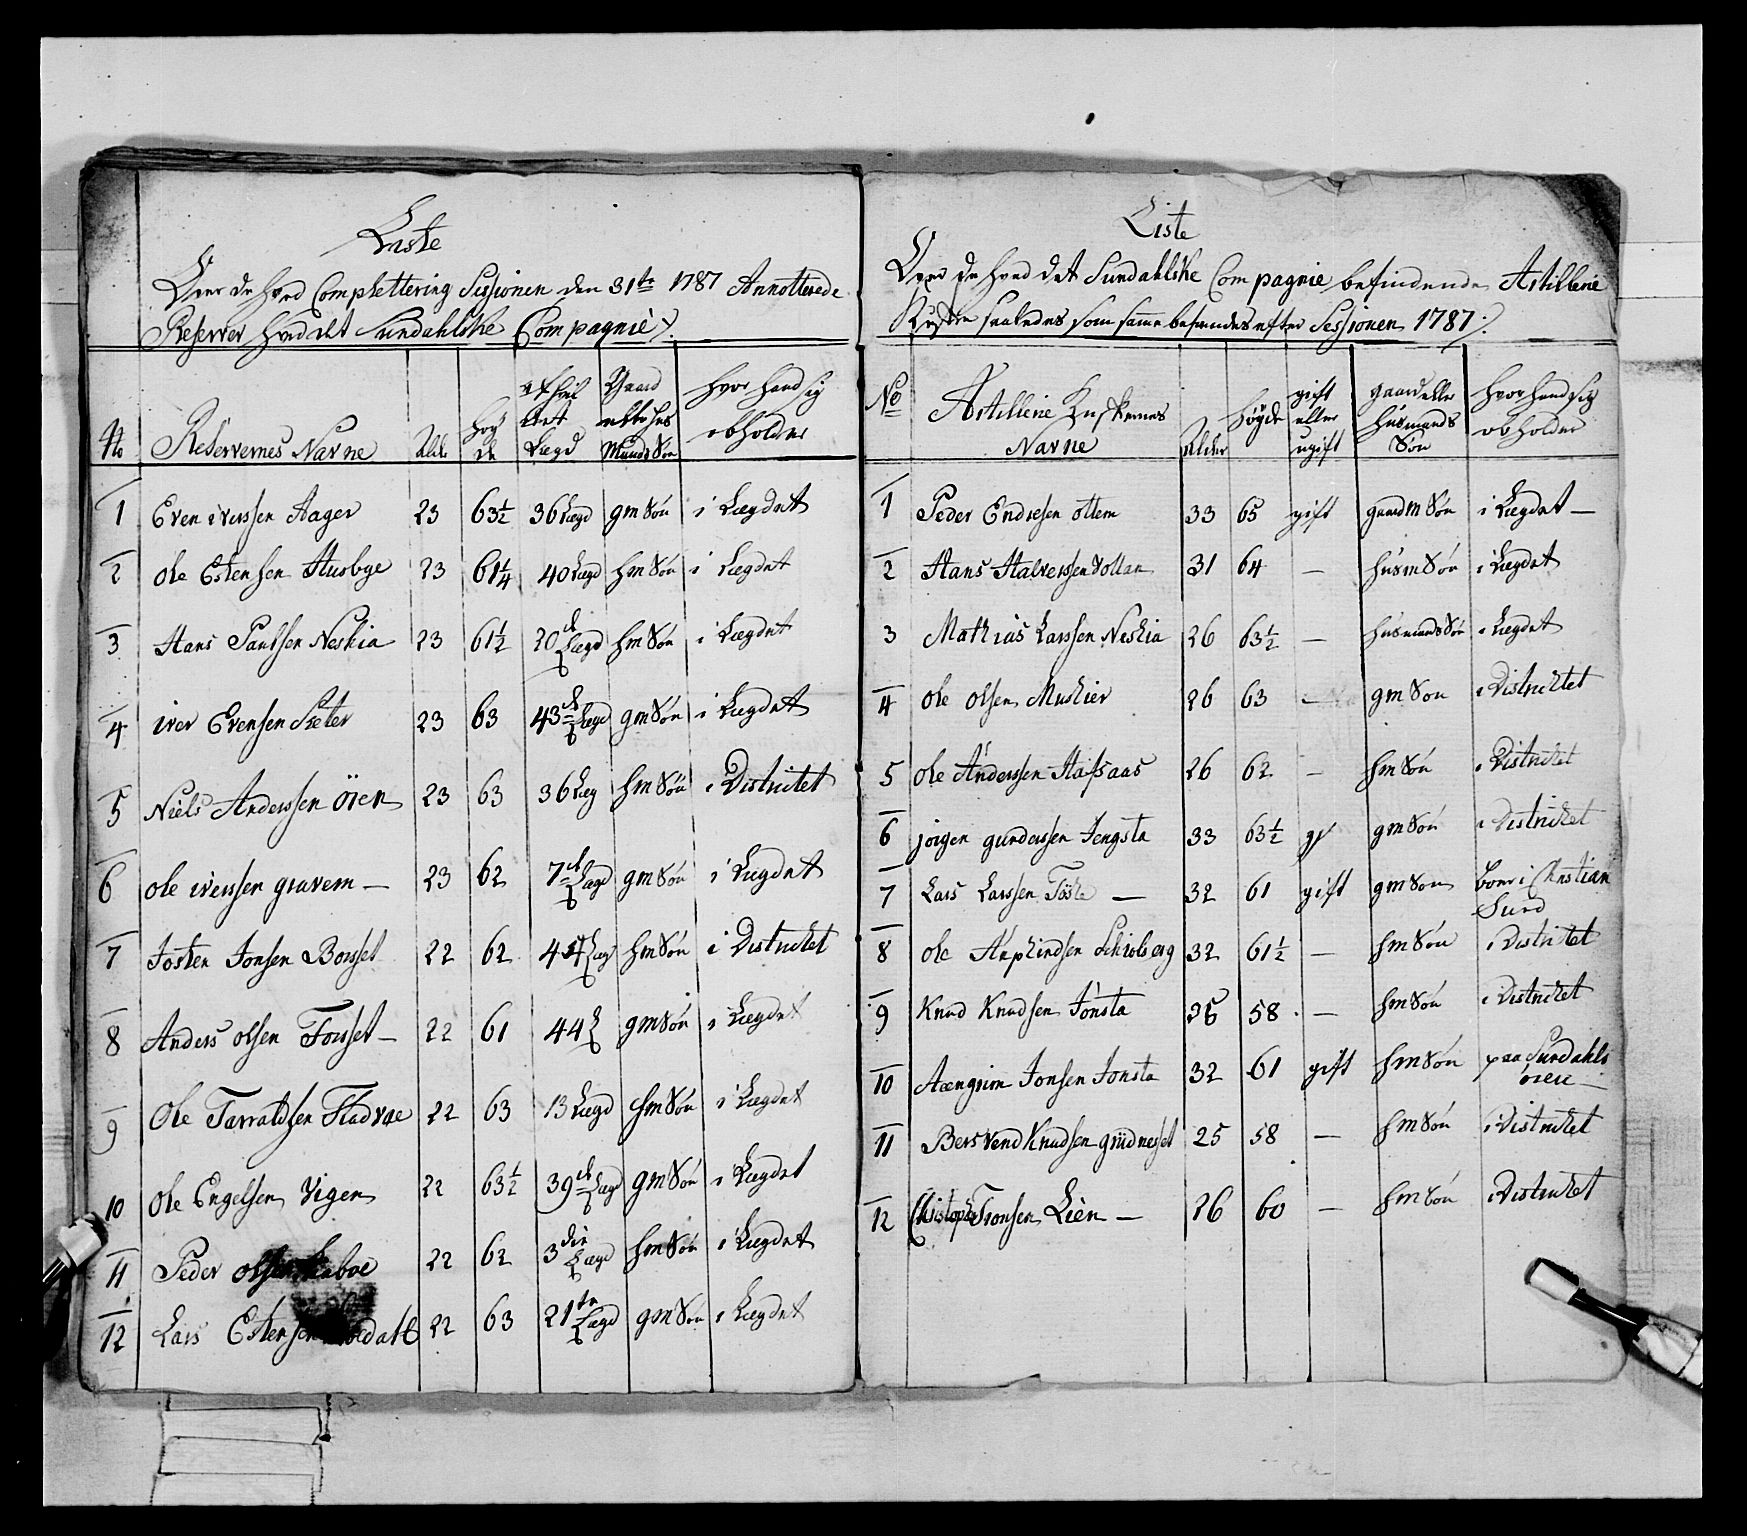 Liste
Over de hved Complettering Sessionen den 31te 1787 Annotterede
Reserver hved det Sundahlske Compagnie
No Reservernes Navne Alder Høy de Lægd Gaard eller hus Munds Søn hvor hand sig opholder
1 Even iverssen Hager 23 63½ 36 Lægd gm Søn i Lægdet
2 ole Estensen Husbye 23 61¼ 40 Lægd hm Søn i Lægdet
3 Hans Paulsen Neskia 23 61½ 20 d Lægd hm Søn i Lægdet
4 iver Evensen Sæter 23 63 43 d Lægd gm Søn i Lægdet
5 Niels Anderssen Öien 23 63 36 Læg hm Søn i Districtet
6 ole iverssen gravem — 23 62 7 d Lægd gm Søn i Lægdet
7 Josten Jonsen Borsset 22 62 Læg hm Søn i Districktet
8 Anders olsen Forsset — 22 61 44 L gm Søn i Lægdet
9 Ole Tarraldsen Fladvae 22 63 13 Lægd hm Søn i Lægdet
10 Ole Engelsen Vigen 22 63½ 39 d Lægd gm Søn i Lægdet
11 Peder olsen 22 62 3 die Lægd hm Søn i Lægdet
12 Lars Estensen 22 63 21 te Lægd gm Søn i Lægdet
Liste
Over de hved det Sundahlske Compagnie befindende Artillerie
Kuske saaledes som samme befandtes efter Sessionen 1787
No Artillerie Kuskernes Navne Alder høyde gift eller ugift gaard eller husmands Søn hvor hand sig opholder
1 Peder Endresen ottem 33 65 gift gaardm Søn i Lægdet —
2 Hans Halverssen Vollan 31 64 — husm Søn i Lægdet
3 Mathias Larssen Neskia 26 63½ — husmands Søn i Lægdet
4 ole olsen Muskier 26 63 — gm Søn i Districktet
5 ole Anderssen Hafsaas 26 62 — hm Søn i Districktet
6 jørgen gunderssen Jengsta 33 63½ g hm Søn i Districktet
7 Lars Larssen Töske — 32 61 gift gm Søn boer i Christian
Sund
8 ole Arphindsen 32 61½ — hm Søn i Districtet
9 Knud Knudsen Jonsta 36 58 — hm Søn i Districktet
10 Aængrim Jonsen Jonsta 32 61 gift hm Søn paa Sundahls
ören —
11 Bersvend Knudsen grüdnesset 25 58 — hm Søn i Districktet
12 Christopher Tronsen Lien — 26 60 — hm Søn i Districktet